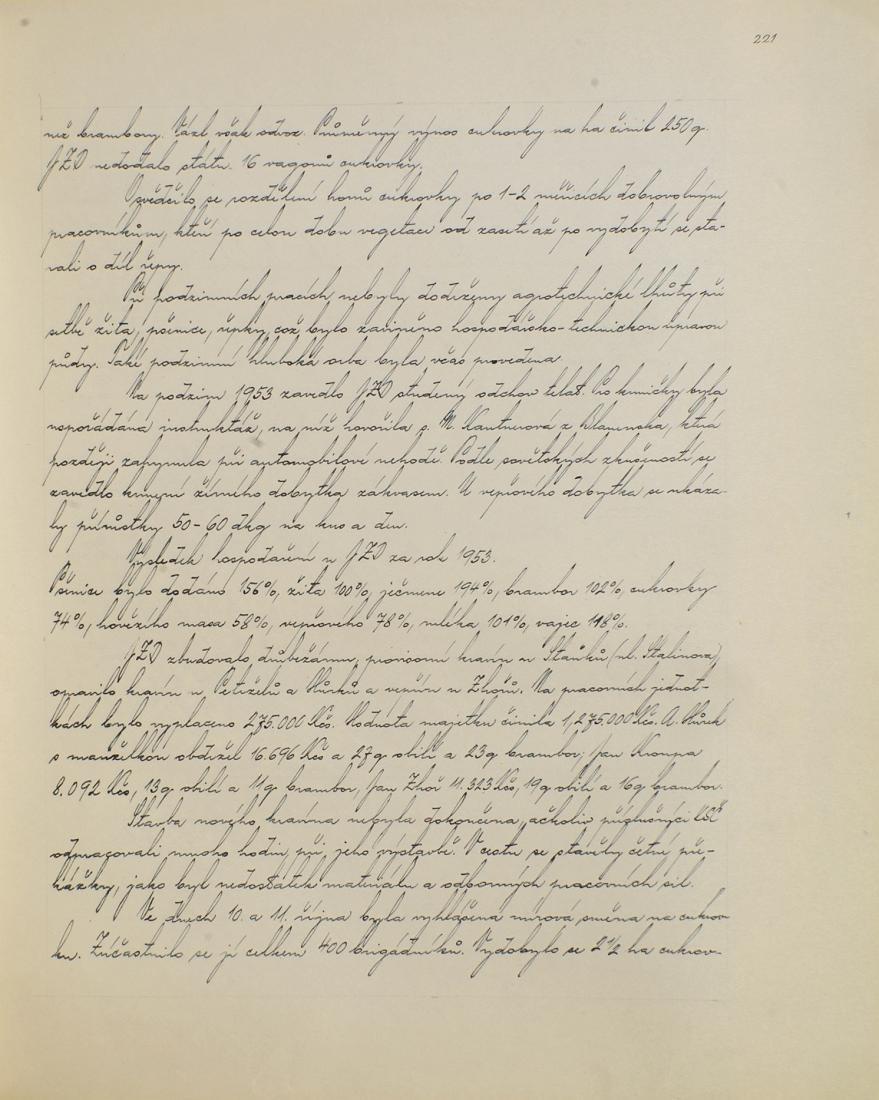 221
než brambory. Vázl však odvoz. Průměrný výnos cukrovky na ha činil 250 q.
JZD nedodalo státu 16 vagonů cukrovky.
Osvědčilo se rozdělení honů cukrovky po 1-2 měřicích dobrovolným
pracovníkům, kteří po celou dobu vegetace od zasetí až po vydobytí se sta-
rali o díl řepy.
Při podzimních pracích nebyly dodrženy agrotechnické lhůty při
setbě žita, pšenice, řepky, což bylo zaviněno hospodářsko-technickou úpravou
půdy. Také podzimní hluboká orba byla včas provedena.
Na podzim 1953 zavedlo JZD studený odchov telat. Pro krmičky byla
uspořádána instruktáž, na níž hovořila s. M. Kautnerová z Blanenska, která
později zahynula při automobilové nehodě. Podle sovětských zkušeností se
zavedlo krmení žírného dobytka zákvasem. U vepřového dobytka se ukáza-
ly přírůstky 50-60 dkg na kus a den.
Výsledek hospodaření v JZD za rok 1953.
Pšenice bylo dodáno 156%, žita 100%, ječmene 194%, brambor 102%, cukrovky
74%, hovězího masa 58%, vepřového 78%, mléka 101%, vajec 118%.
JZD zbudovalo drůbežárnu, provisorní kravín u Staňků (ul. Stalinova),
opravilo kravín u Petrželů a Hůrků a vepřín u Zhořů. Na pracovních jednot-
kách bylo vyplaceno 275.000 Kčs. Hodnota majetku činila 1,275.000 Kčs. A. Hůrek
s manželkou obdržel 16.696 Kčs a 27 q obilí a 23 q brambor; Jan Kroupa
8.092 Kčs, 13 q obilí a 11 q brambor, Jan Zhoř 11.323 Kčs, 19 q obilí a 16 q brambor.
Stavba nového kravína nebyla dokončena, ačkoliv příslušníci
odpracovali mnoho hodin při jeho výstavbě. V cestu se stavěly četné pře-
kážky, jako byl nedostatek materiálu a odborných pracovních sil.
Ve dnech 10. a 11. října byla vyhlášena mírová směna na cukrov-
ku. Zúčastnilo se jí celkem 400 brigádníků. Vydobylo se 2 1/2 ha cukrov-